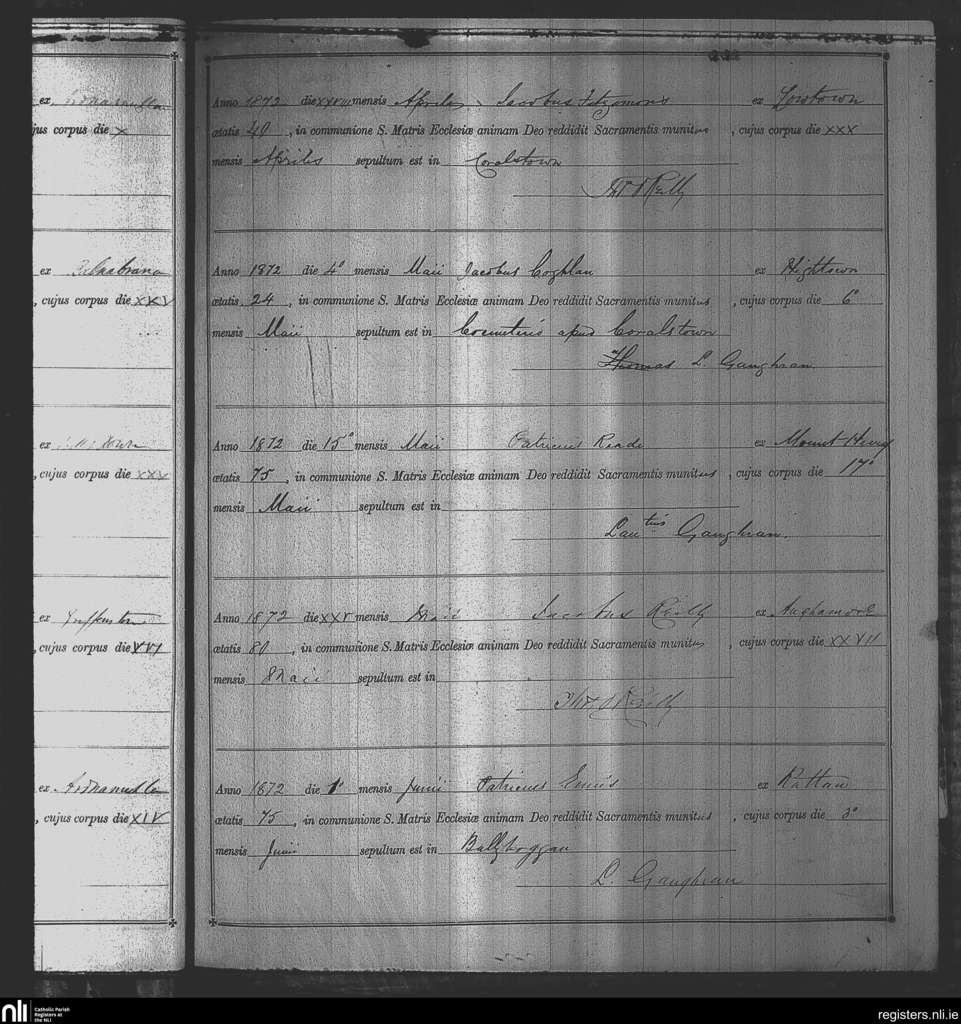 ex
jus corpus die X
ex
, cujus corpus die XXV
ex
, cujus corpus die XXV
ex
, cujus corpus die XVI
ex
, cujus corpus die XIV
Anno 1872 die XXVIII mensis Aprilis Jacobus Fitzsimons ex Lowtown
ætatis 40, in communione S. Matris Ecclesiæ animam Deo reddidit Sacramentis munitus, cujus corpus die XXX
mensis Aprilis sepultum est in Coralstown
Reilly
Anno 1872 die 4° mensis Maii Jacobus Coghlan ex Hightown
ætatis 24, in communione S. Matris Ecclesiæ animam Deo reddidit Sacramentis munitus, cujus corpus die 6°
mensis Maii sepultum est in apud Coralstown
Thomas L. Gaughran
Anno 1872 die 15° mensis Maii Patricius Reade ex Mount Henry
ætatis 75, in communione S. Matris Ecclesiæ animam Deo reddidit Sacramentis munitus, cujus corpus die 17°
mensis Maii sepultum est in
Lau tius Gaughran.
Anno 1872 die XXV mensis Maii Jacobus Reilly ex
ætatis 80, in communione S. Matris Ecclesiæ animam Deo reddidit Sacramentis munitus, cujus corpus die XXVII
mensis Maii sepultum est in
Reilly
Anno 1872 die 1° mensis Junii Patricius Ennis ex Rattan
ætatis 75, in communione S. Matris Ecclesiæ animam Deo reddidit Sacramentis munitus, cujus corpus die 3°
mensis Junii sepultum est in Ballyboggan
L. Gaughran
nli Catholic Parish
Registers at
the NLI
registers.nli.ie